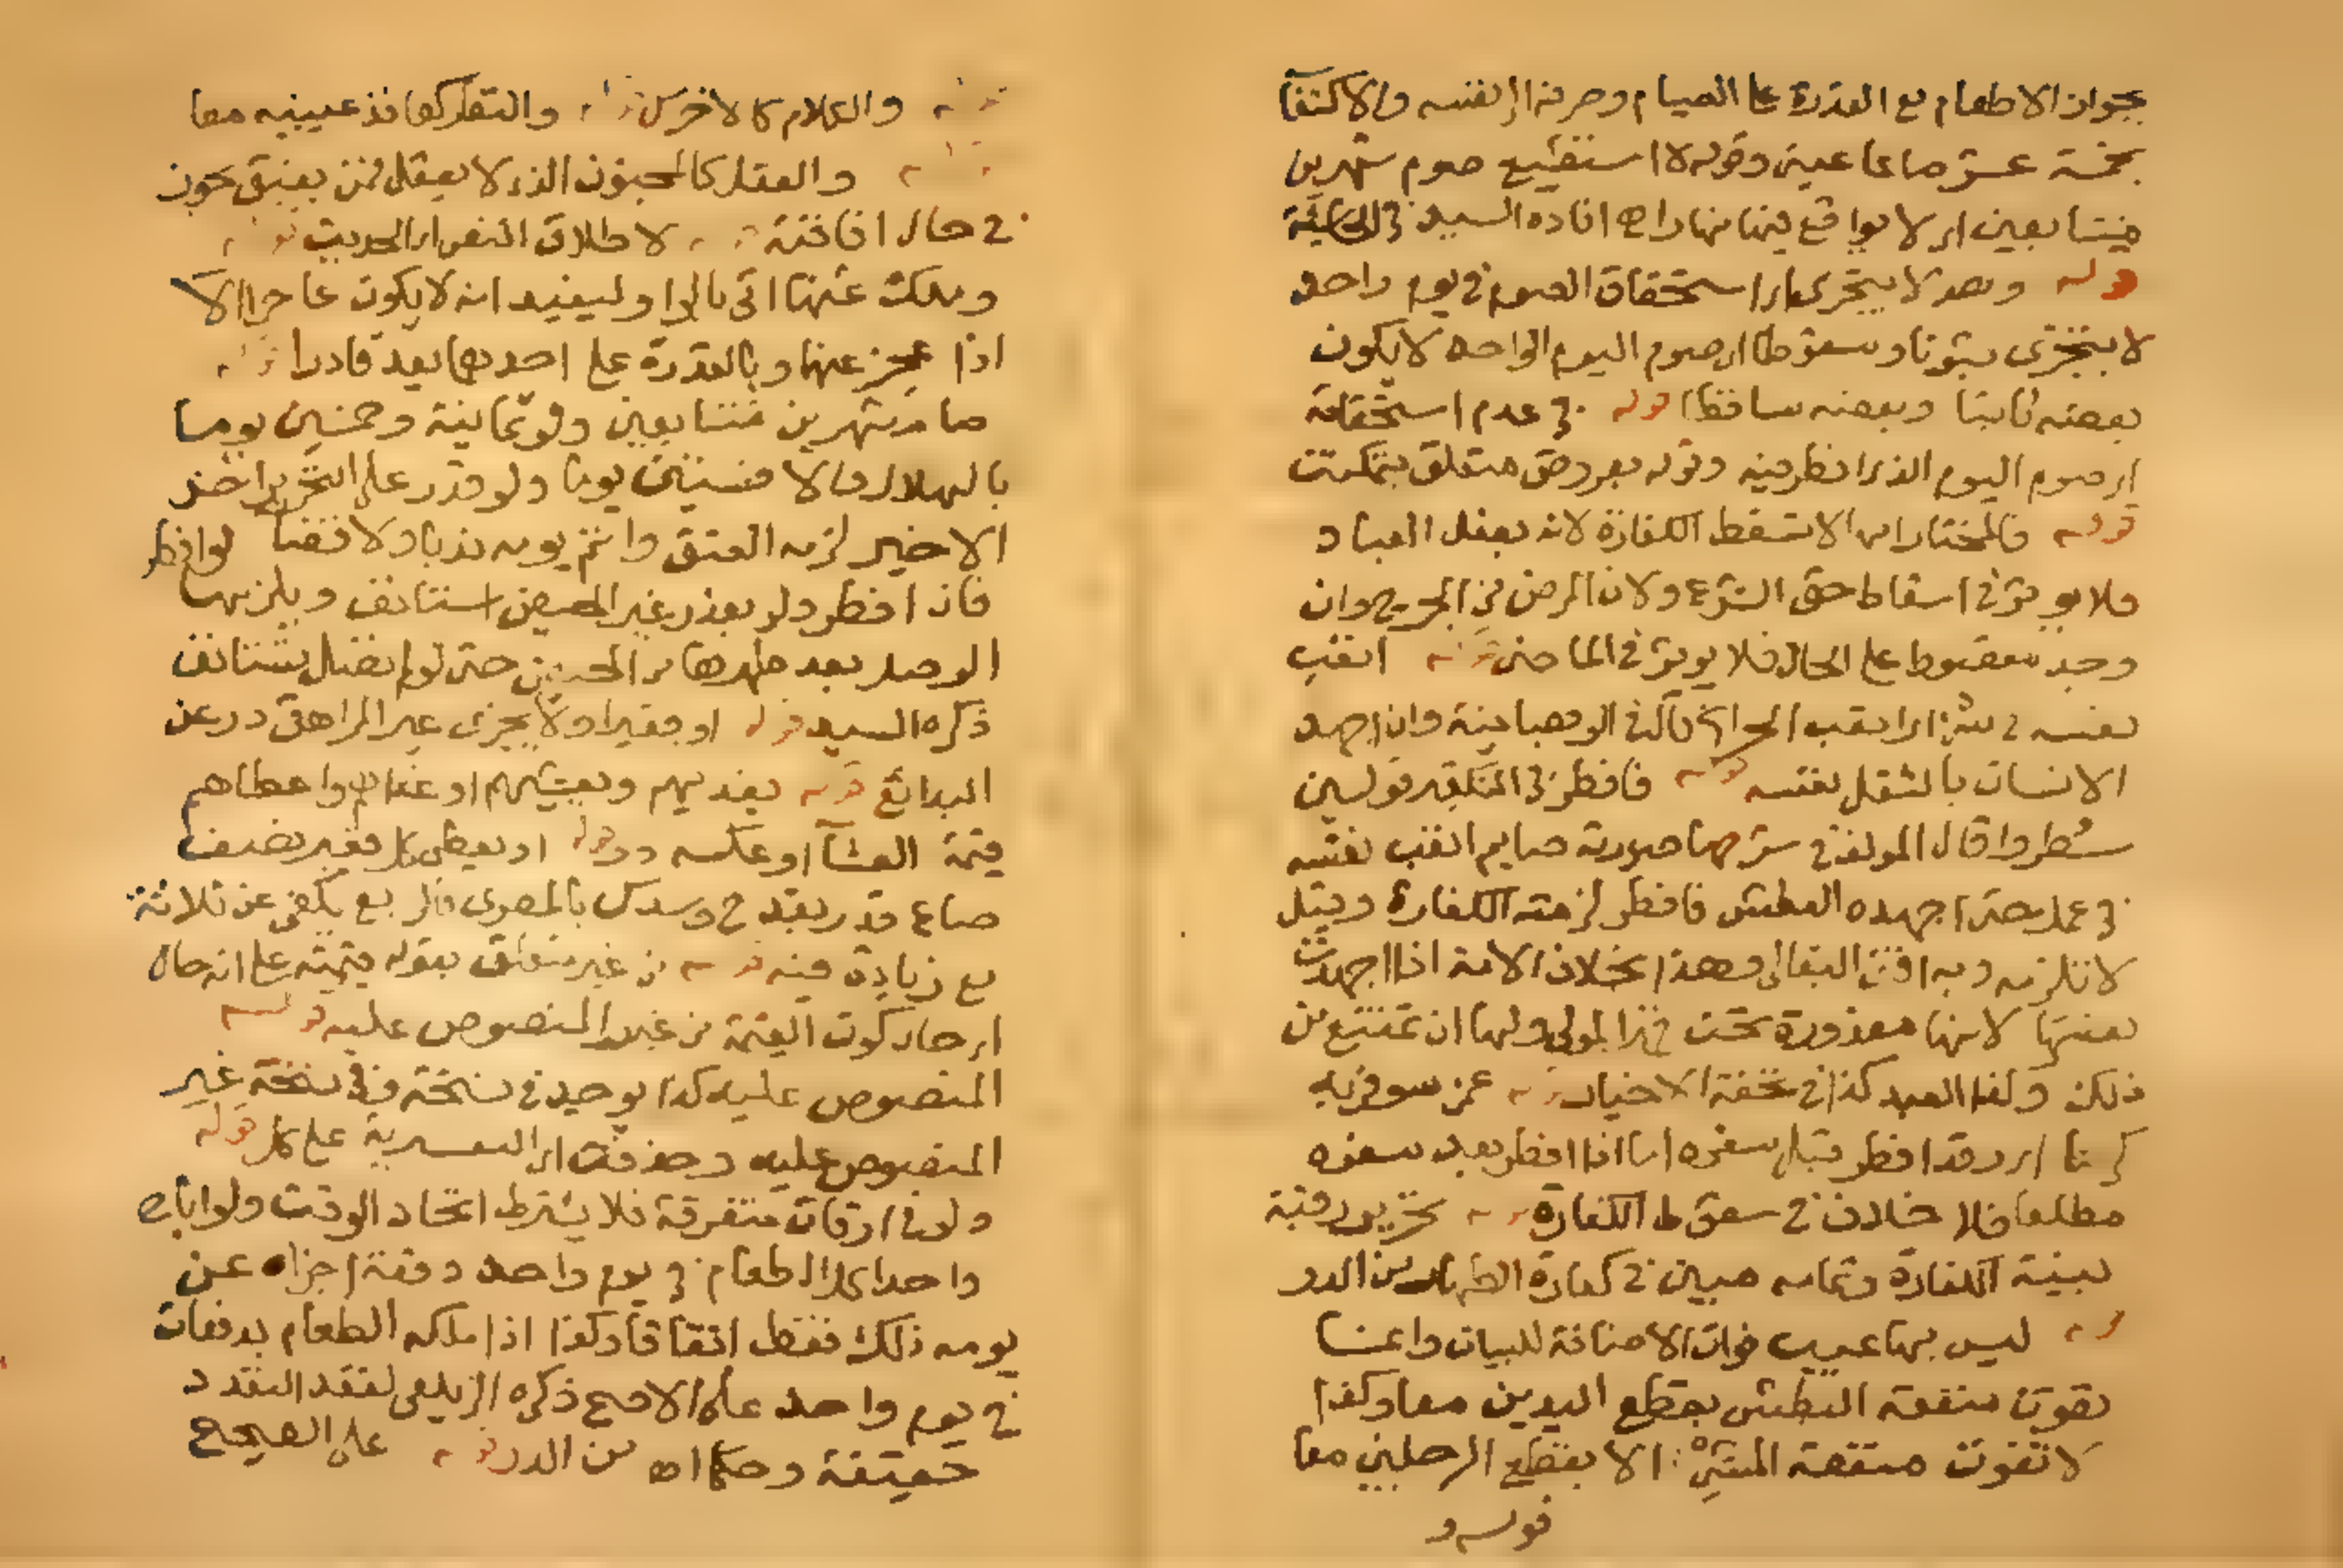 بجواز الاطعام مع القدرة على الصيام وصرفه الى نفسه والاكتفآ
بخمسة عشر صاعا عينى وقوله لا استطيع صوم شهرين
متتابعين اى لا يواقع فيها نهارا اه افاده السيد فى الحاشية
قوله وهذ لا يتجزى اى استحقاق الصوم فى يوم واحد
لا يتجزى ثبوتا وسقوطا اى صوم اليوم الواحد لا يكون
بعضه ثابتا وبعضه ساقطا قوله فى عدم استحقاقه
اى صوم اليوم الذى افطر فيه وقوله بعروض متعلق بتمكنت
قوله فالمختار انها لا تسقط الكفارة لانه بفعل العباد
فلا يوثر فى اسقاط حق الشرع ولان المرض من الجرح وان
وجد مقصوط على الحال فلا يوثر فى الماضى قوله اتعب
نفسه فى شئ اى اتعب الحر الخ قال فى الوهبانية وان اجهد
الانسان بالشغل نفسه قوله فافطر فى التكفير قولين
سطروا قال المولف فى شرحها صورته صايم اتعب نفسه
فى عمل حتى اجهده العطش فافطر لزمته الكفارة وقيل
لا تلزمه وبه افتى البقالى وهذا بخلاف الامة اذا اجهدت
نفسها لانها معذورة تحت قهر المولى ولها ان تمتنع من
ذلك وكذا العبد كذا فى تحفة الاخيار قوله عمن سوفر به
كرها اى وقد افطر قبل سفره اما اذا افطر بعد سفره
مطلعا فلا خلاف فى سقوط الكفارة قوله تحرير رقبة
بنية الكفارة وتمامه مبين فى كفارة الظهار من الدر
قوله ليس بها عيب فوات الاضافة للبيان واعنا
تفوت منفعة البطش بقطع اليدين معا وكذا
لا تفوت منفعة المشى الا بقطع الرجلين معا
قوله و
قوله والكلام كالاخرس قوله والنظر كما فى عينيه معا
قوله والعقل كالمجنون الذى لا يعقل فمن يفيق يجوز
فى حال افاقته قوله لاطلاق النص اى الحديث قوله
وملك عنها اتى بالواو ليفيد انه لا يكون عاجزا الا
اذا عجز عنها وبالقدرة على احدها يعد قادرا قوله
صام شهرين متتابعين ولو ثمانية وخمسين يوما
بالهلال والا فستين يوما ولو قدر على التحرير اخر
الاخير لزمه العتق واتم يومه ندبا ولا قضا لو افطر
فان افطر ولو بعذر غير الحيض استانف ويلزمها
الوصل بعد طهرها من الحيض حتى لو لم تصل تستانف
ذكره السيد قوله او فقيرا ولا يجزى غير المراهق در عن
البدائع قوله يغديهم ويعشيهم او غداهم واعطاهم
قيمة العشآ او عكسه در قوله او يعطى كل فقير نصف
صاع قدر بقدح وسدس بالمصرى فالربع يكفى عن ثلاثة
مع زيادة فيه قوله من غير متعلق بقوله قيمته على انه حال
اى حال كون القيمة من غير المنصوص عليه قوله
المنصوص عليه كذا يوجد فى نسخة وفى نسخة غير
المنصوص عليه وحذفت اى التعسرية على كل قوله
ولو فى اوقات متفرقة فلا يشترط اتحاد الوقت ولو اباح
واحدا كل الطعام فى يوم واحد دفعة اجزاه عن
يومه ذلك فقط اتفاقا وكذا اذا ملكه الطعام بدفعات
فى يوم واحد على الاصح ذكره الزيلعى لفقد التعدد
حقيقة وحكما اه من الدر قوله على الصحيح